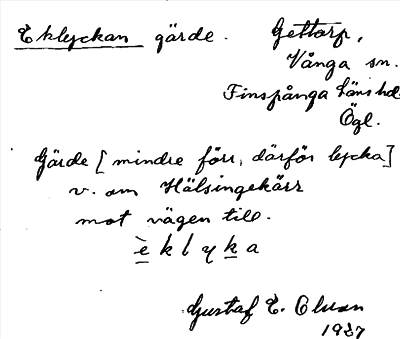 Eklyckan gärde. Gettorp,
Vånga sn.
Finspånga läns hd.
Ögl.
Gärde [mindre förr, därför lycka]
v. om Hälsingekärr
mot vägen till.
è k l y k a
Gustaf E. Olson
1937